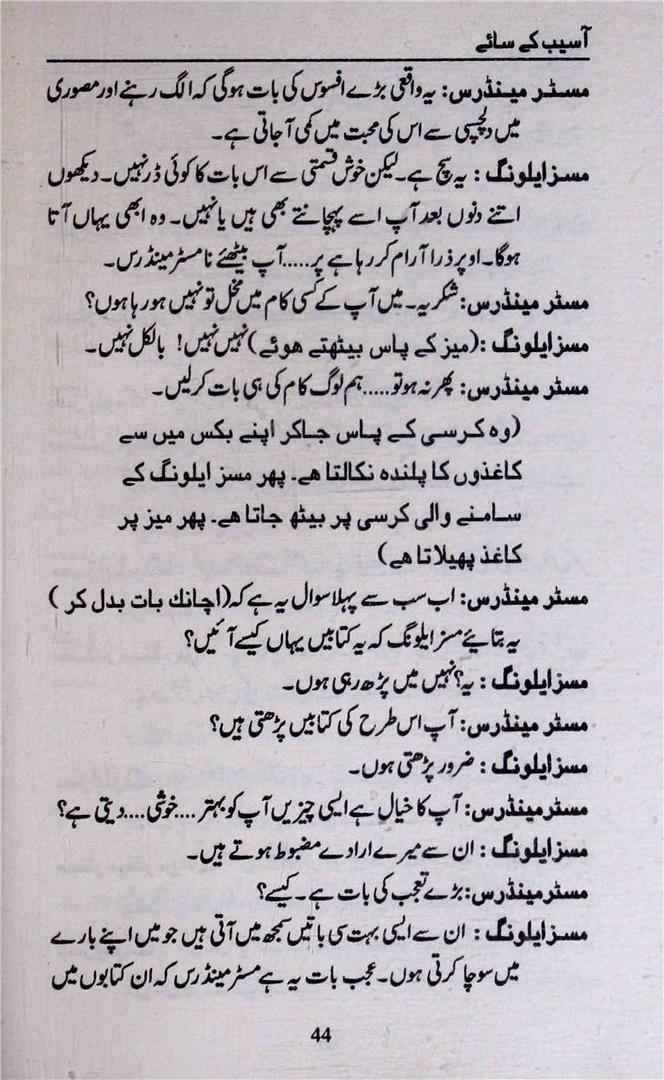 آسیب کے سائے
مسٹر مینڈرس: یہ واقعی بڑے افسوس کی بات ہوگی کہ الگ رہنے اور مصوری
میں دلچسپی سے اس کی محبت میں کمی آ جاتی ہے۔
مسز ایلونگ : یہ سچ ہے۔ لیکن خوش قسمتی سے اس بات کا کوئی ڈر نہیں۔ دیکھوں
اتنے دنوں بعد آپ اسے پہچانتے بھی ہیں یا نہیں۔ وہ ابھی یہاں آتا
ہوگا۔ اوپر ذرا آرام کر رہا ہے پر.....آپ بیٹھئے نا مسٹر مینڈرس۔
مسٹر مینڈرس: شکریہ۔ میں آپ کے کسی کام میں مخل تو نہیں ہو رہا ہوں؟
مسز ایلونگ :(میز کے پاس بیٹھتے ھوئے) نہیں نہیں! بالکل نہیں۔
مسٹر مینڈرس: پھر نہ ہو تو.....ہم لوگ کام کی ہی بات کر لیں۔
(وہ کرسی کے پاس جاکر اپنے بکس میں سے
کاغذوں کا پلندہ نکالتا ھے۔ پھر مسز ایلونگ کے
سامنے والی کرسی پر بیٹھ جاتا ھے۔ پھر میز پر
کاغذ پھیلاتا ھے)
مسٹر مینڈرس: اب سب سے پہلا سوال یہ ہے کہ (اچانك بات بدل کر )
یہ بتائیے مسز ایلونگ کہ یہ کتابیں یہاں کیسے آئیں؟
مسز ایلونگ : یہ؟ نہیں میں پڑھ رہی ہوں۔
مسٹر مینڈرس: آپ اس طرح کی کتابیں پڑھتی ہیں؟
مسز ایلونگ : ضرور پڑھتی ہوں۔
مسٹر مینڈرس: آپ کا خیال ہے ایسی چیزیں آپ کو بہتر....خوشی....دیتی ہے؟
مسز ایلونگ : ان سے میرے ارادے مضبوط ہوتے ہیں۔
مسٹر مینڈرس: بڑے تعجب کی بات ہے۔ کیسے؟
مسز ایلونگ : ان سے ایسی بہت سی باتیں سمجھ میں آتی ہیں جو میں اپنے بارے
میں سوچا کرتی ہوں۔ عجب بات یہ ہے مسٹر مینڈرس کہ ان کتابوں میں
44